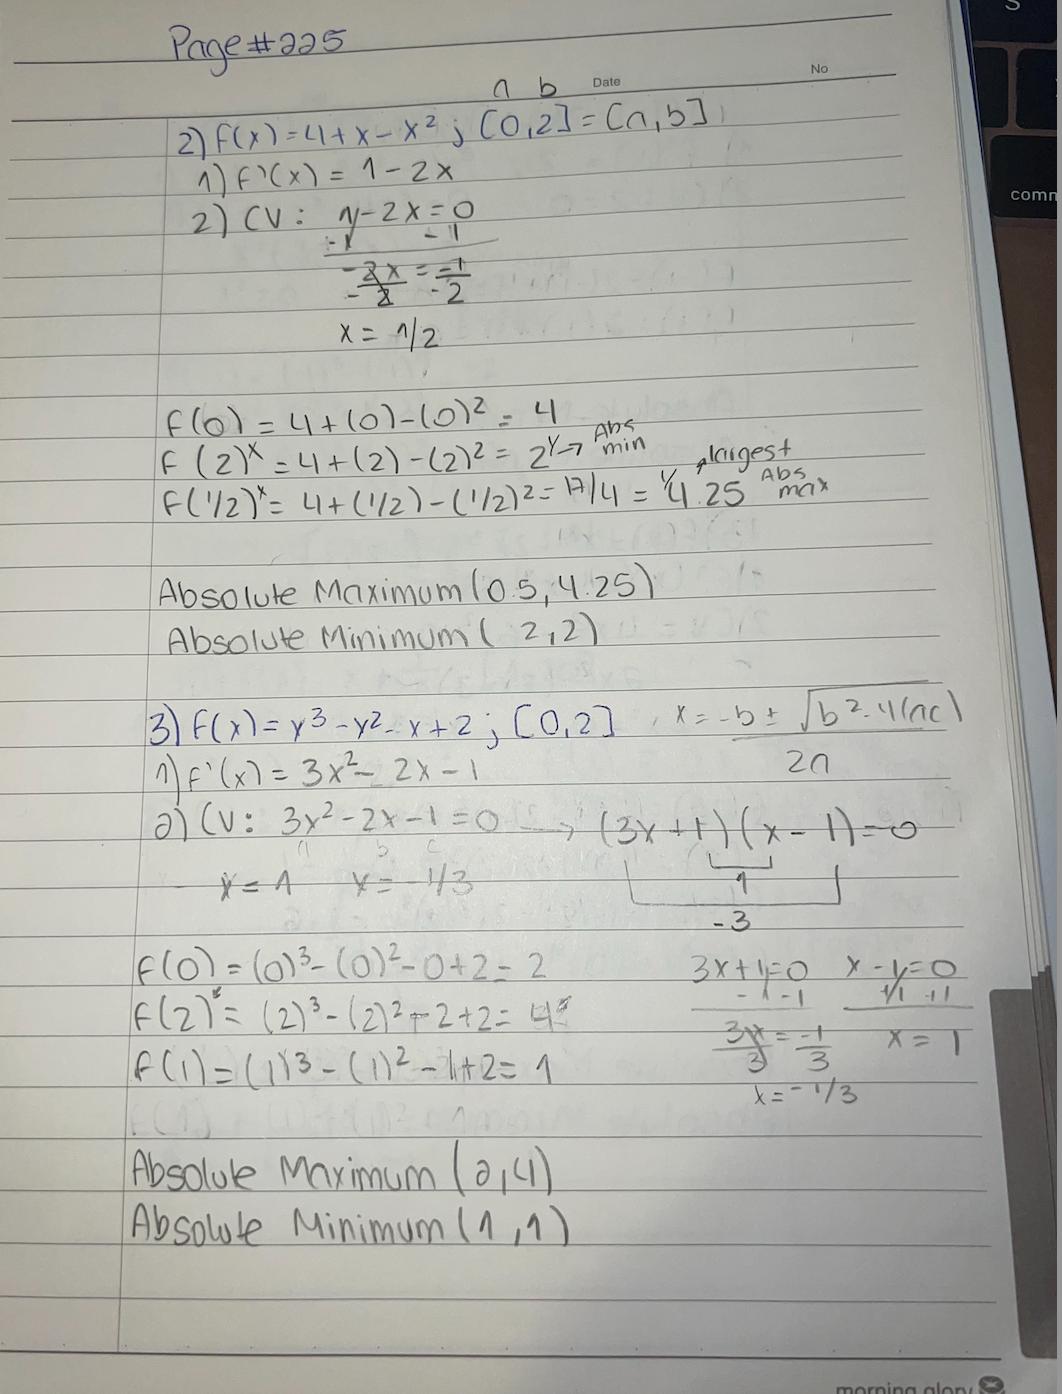 Page #225
No
Date
a b
2) f(x) = 4 + x - x² ; [0,2] = [a,b]
1) f'(x) = 1 - 2x
2) CV: 1 - 2x = 0
-1 -1
-2x/-2 = -1/-2
x = 1/2
f(0) = 4 + (0) - (0)² = 4
f(2)ˣ = 4 + (2) - (2)² = 2ʸ → Abs min
f(1/2)ˣ = 4 + (1/2) - (1/2)² = 17/4 = ʸ4.25 largest Abs max
Absolute Maximum (0.5, 4.25)
Absolute Minimum ( 2,2)
3) f(x) = x³ - x² - x + 2 ; [0,2] x = -b ± √b² - 4(ac) / 2a
1) f'(x) = 3x² - 2x - 1
2) CV: 3x² - 2x - 1 = 0 → (3x + 1)(x - 1) = 0
a b c
x = 1 x = -1/3
1
-3
f(0) = (0)³ - (0)² - 0 + 2 = 2
f(2)ˣ = (2)³ - (2)² - 2 + 2 = 4ʸ
f(1) = (1)³ - (1)² - 1 + 2 = 1
3x + 1 = 0 x - 1 = 0
-1 -1 +1 +1
3x/3 = -1/3 x = 1
x = -1/3
Absolute Maximum (2,4)
Absolute Minimum (1,1)
morning glory
S
comm